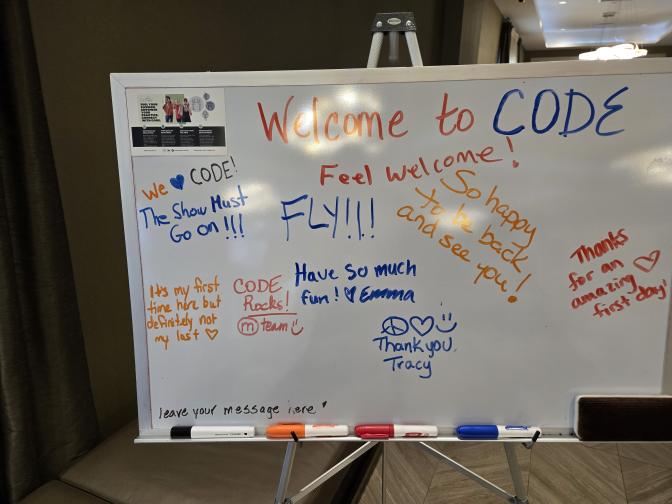 Welcome to CODE
Feel welcome!
We CODE!
The Show Must
Go on !!!
FLY!!!
So happy
to be back
and see you!
Thanks
for an
amazing
first day!
It's my first
time here but
definitely not
my last
CODE
Rocks!
m team
Have so much
fun! Emma
Thank you,
Tracy
leave your message here